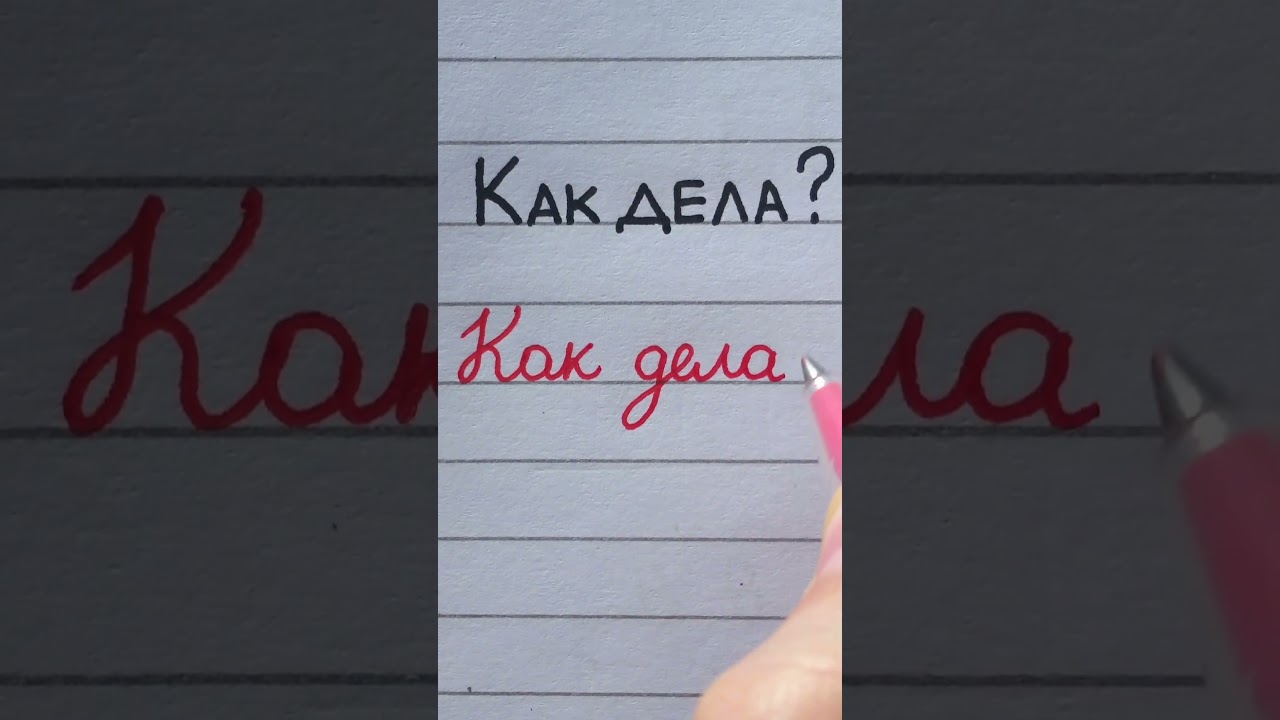 Как дела?
Как дела